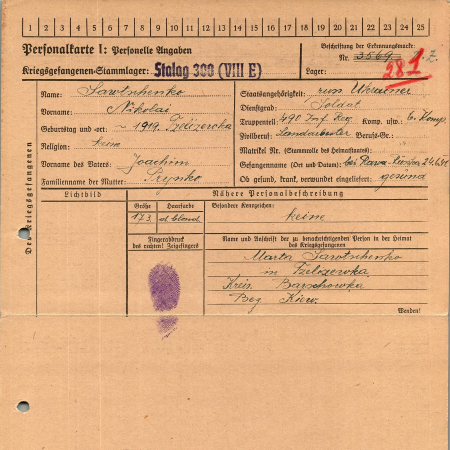 1 2 3 4 5 6 7 8 9 10 11 12 13 14 15 16 17 18 19 20 21 22 23 24 25
Personalkarte I: Personelle Angaben
Kriegsgefangenen-Stammlager: Stalag 300 (VIII E)
Beschriftung der Erkennungsmarke:
Nr. 3569
Lager: 281
Des Kriegsgefangenen
Name: Sawtschenko
Vorname: Nikolai
Geburtstag und -ort: 1919
Religion: keine
Vorname des Vaters: Joachim
Familienname der Mutter:
Staatsangehörigkeit: russ Ukrainer
Dienstgrad: Soldat
Truppenteil: 490 Inf. Reg. Komp. usw.: 6. Komp.
Zivilberuf: Landarbeiter Berufs-Gr.:
Matrikel Nr. (Stammrolle des Heimatstaates):
Gefangennahme (Ort und Datum): bei Rawa 24.6.41
Ob gesund, krank, verwundet eingeliefert: gesund
Lichtbild
Nähere Personalbeschreibung
Größe Haarfarbe Besondere Kennzeichen:
173 blond keine
Fingerabdruck
des rechten! Zeigefingers
Name und Anschrift der zu benachrichtigenden Person in der Heimat
des Kriegsgefangenen
Marta Sawtschenko
in
Kreis Barschowka
Bez Kiew.
Wenden!